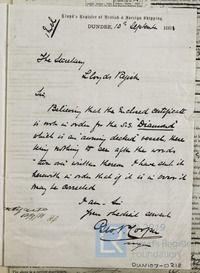 Lloyd's Register of British & Foreign Shipping,
DUNDEE, 10th September 188
The Secretary
Lloyds Register
Sir
Believing that the Enclosed certificate
is not in order for the S.S. "Diamond"
which is an awning decked vessel, there
being nothing to see after the words
written thereon I have sent it
herewith in order that if it is in error it
may be corrected
I am - Sir
Your obedient servant
Geo
DUN107-0218